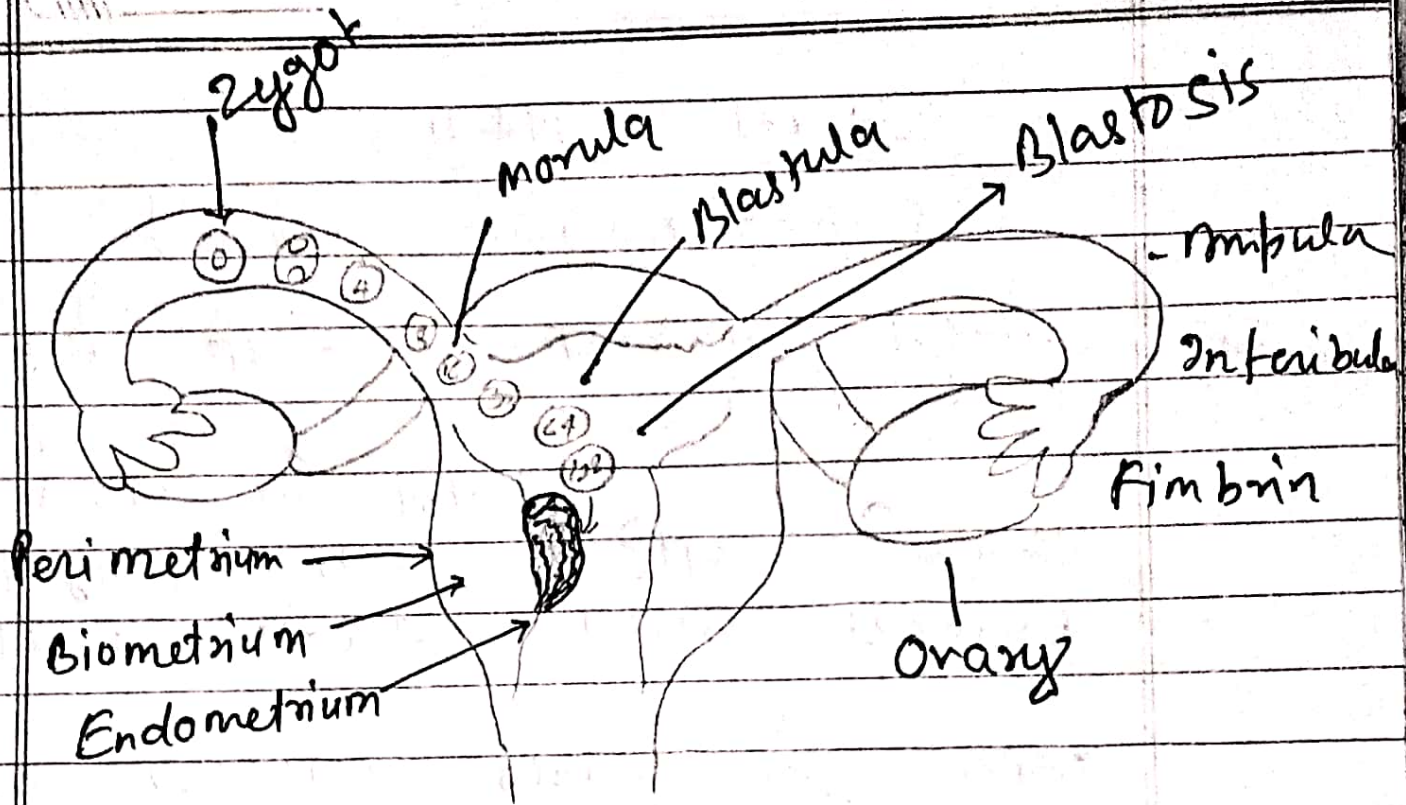 Zygot
Morula
Blastula
Blastosis
- Ampula
Infenibula
Fimbrin
Ovary
Perimetrium
Biometrium
Endometrium
4
8